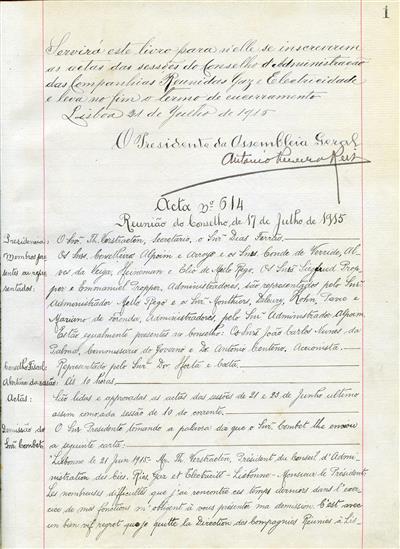 1
Servirá este livro para n'elle se inscreverem
as actas das sessões do Conselho d'Administração
das Companhias Reunidas Gaz e Electricidade
e leva no fim o termo de encerramento
Lisboa 21 de Julho de 1915
O Presidente da Assembleia Geral
Antonio
Acta Nº 614
Reunião do Conselho, de 17 de Julho de 1915
Presidencia: O Snr. Th. Verstraeten, Secretario, o Snr. Deas
Membros pre- Os Snrs. Conselheiros Alpoim e Arroyo e os Snrs. Conde de Verride, Al-
sente ou repre- ves da Veiga, Heineman e Elio de Mello Rego. Os Snrs. Siegfried Prop-
sentados: per e Emmanuel Propper, Administradores, são representados pelo Snr.
Administrador Mello Rego e o Snr.
de Administradores, pelo Snr. Administrador Alpoim.
Estão egualmente presentes no conselho: Os Snrs. João Carlos Nunes da
Palma, Commissario do Governo e Dr. Antonio Centeno, Accionista.
Conselho Fiscal: Representado pelo Snr. Dor. Horta e Costa.
Abertura da sessão: As 10 horas
Actas: São lidas e approvadas as actas das sessões de 21 e 23 de Junho ultimo
assim como da sessão de 10 do corrente.
Demissão do O Snr. Presidente tomando a palavra diz que o Snr. Combot lhe enviou
Snr. Combot. a seguinte carta:
"Lisbonne le 21 juin 1915- Mr. Th. Verstraeten, Président du Conseil d'Admi-
nistration des Cies. Ries. Gaz et Electricité - Lisbonne - Monsieur le Président:
Les nombreuses difficultés que j'ai rencontré ces temps derniers dans l'exer-
cice de mes fonctions m'obligent à vous présenter ma démission. C'est avec
un bien vif regret que je quitte la Direction des Compagnies Réunies à Lis-